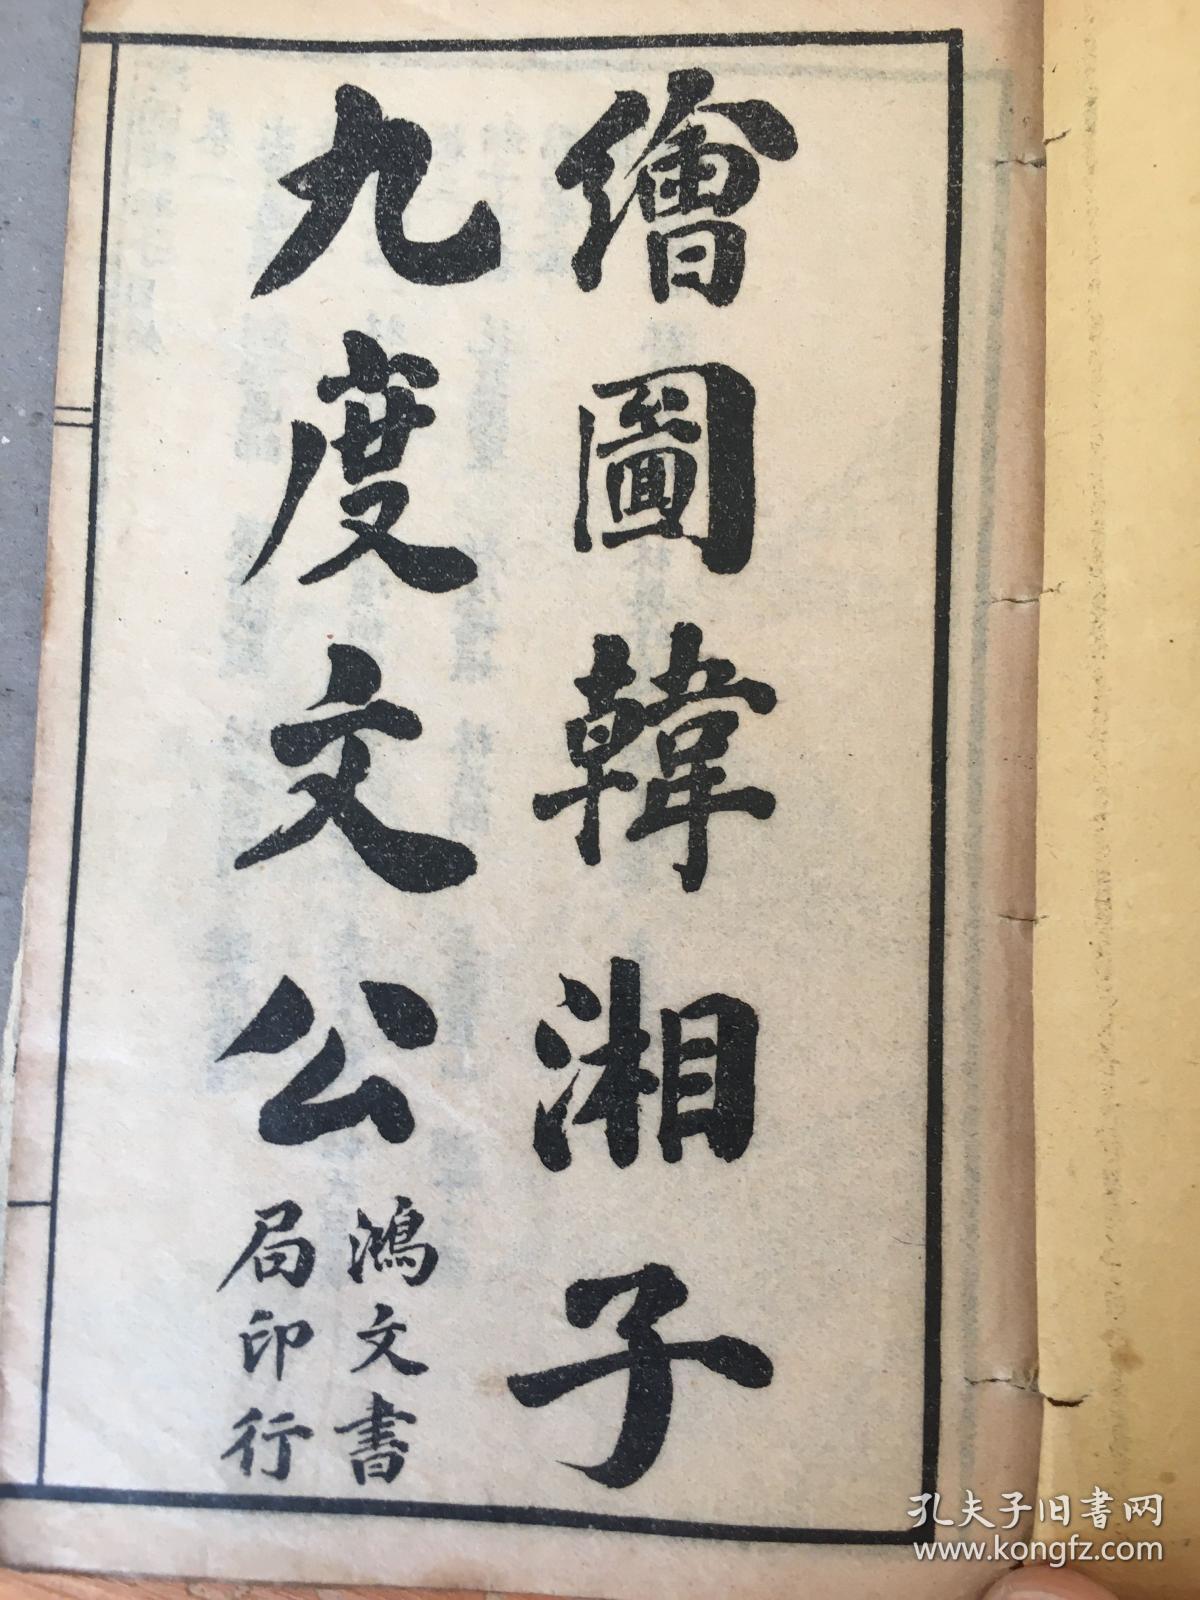 繪圖韓湘子
九度文公
鴻文書
局印行
孔夫子旧书网
www.kongfz.com